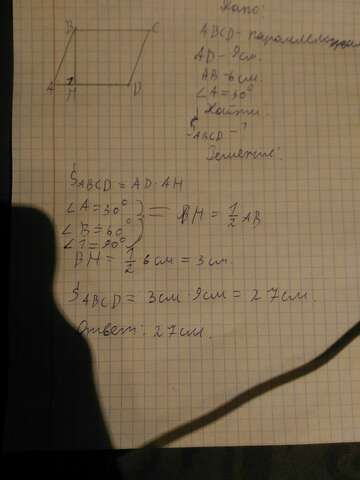 B C
A H D
Дано:
ABCD - параллелограмм
AD - 9 см.
AB - 6 см.
∠A = 30°
Найти:
S ABCD - ?
Решение:
S ABCD = AD · AH
∠A = 30°
∠B = 60° => BH = 1/2 AB
∠H = 90°
BH = 1/2 6 см = 3 см.
S ABCD = 3 см · 9 см = 27 см.
Ответ: 27 см.